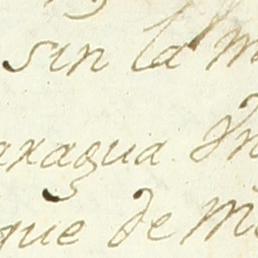 sin la m
araqua. In
que de m